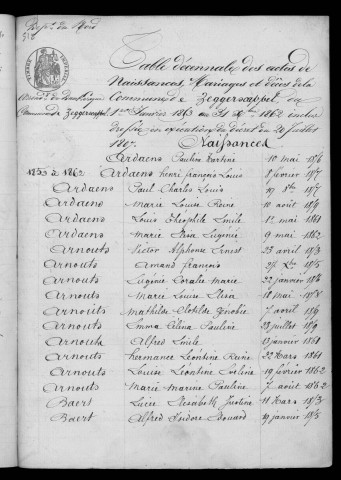 Dépt. du Nord
Table décennale des actes de
Naissances, Mariages et décès de la
Commune de Zeggerscappel, du
1er Janvier 1853 au 31 Xbre 1862 inclus
dressée en exécution du décret du 20 Juillet
1807.
Naissances
Ardaens Pauline Martine 10 mai
1853 à 1862 Ardaens henri françois Louis 8 février
Ardaens Paul Charles Louis 17
Ardaens Marie Louise Reine 10 août
Ardaens Louis Théophile Emile 1er mai 1861
Ardaens Marie Eugénie 9 mai 1862
Arnouts Victor Alphonse Ernest 23 avril 1853
Arnouts Amand françois Xbre
Arnouts Eugénie Coralie Marie 22 janvier
Arnouts Marie Louise Elisa 18 mai
Arnouts Mathilde Clotilde Zénobie 7 avril
Arnouts Emma Célina Pauline 23 juillet
Arnouts Alfred Emile 13 janvier 1861
Arnouts hermance Léontine Reine 22 Mars 1861
Arnouts Louise Léontine 19 février 1862
Arnouts Marie Pauline 7 août 1862
Baert Lucie Elisabeth Justine 11 Mars 1853
Baert Alfred Isidore Edouard 19 janvier